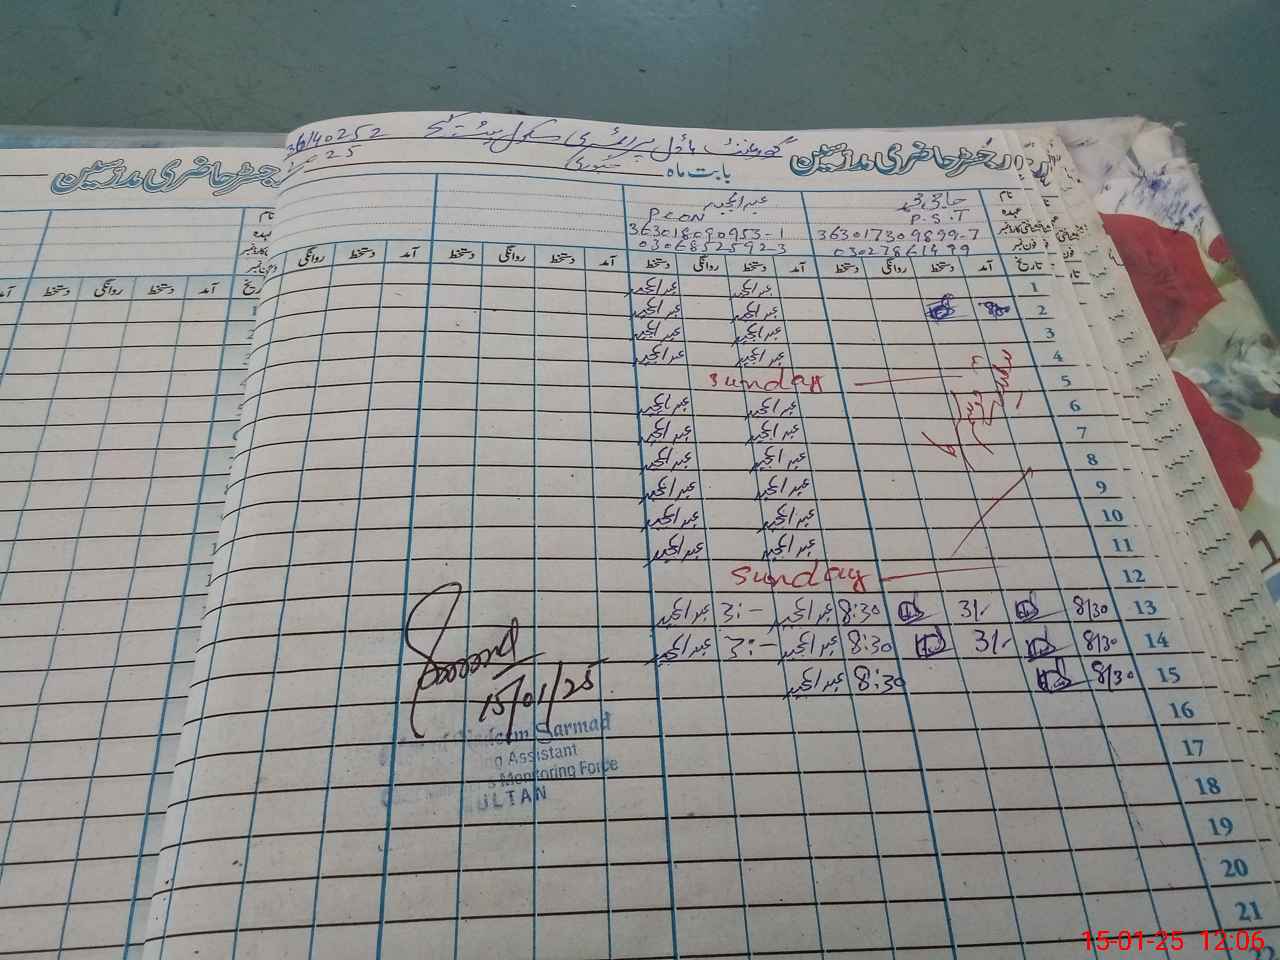 36140252 گورنمنٹ ماڈل پرائمری سکول
رجسٹر حاضری مدرسین بابت ماہ جنوری 25
رجسٹر حاضری مدرسین
نام عبدالمجید
عہدہ P.S.T PEON
363017309899-7 363018090953-1
03027861499 03068525923
تاریخ آمد دستخط روانگی دستخط آمد دستخط روانگی دستخط آمد دستخط روانگی دستخط آمد دستخط روانگی
تاریخ آمد دستخط روانگی دستخط آمد
1 عبدالمجید عبدالمجید
2 8/30 عبدالمجید عبدالمجید
3 عبدالمجید عبدالمجید
4 عبدالمجید عبدالمجید
5 Sunday
6 عبدالمجید عبدالمجید
7 عبدالمجید عبدالمجید
8 عبدالمجید عبدالمجید
9 عبدالمجید عبدالمجید
10 عبدالمجید عبدالمجید
11 عبدالمجید عبدالمجید
12 Sunday
13 8/30 3/- 8:30 عبدالمجید 3:- عبدالمجید
14 8/30 3/- 8:30 عبدالمجید 3:- عبدالمجید
15 8/30 8:30 عبدالمجید
16
17
18
19
20
21
22
15/01/25
Nadeem Sarmad
Assistant
Monitoring Force
MULTAN
15-01-25 12:06